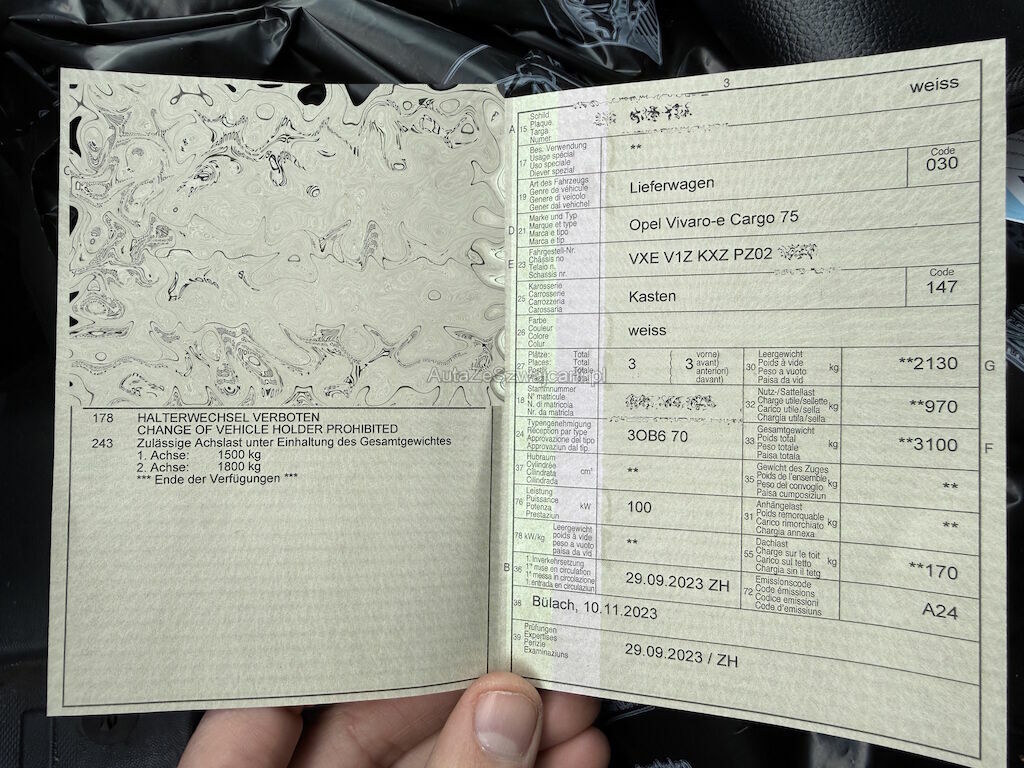 178 HALTERWECHSEL VERBOTEN
CHANGE OF VEHICLE HOLDER PROHIBITED
243 Zulässige Achslast unter Einhaltung des Gesamtgewichtes
1. Achse: 1500 kg
2. Achse: 1800 kg
*** Ende der Verfügungen ***
3
weiss
A 15 Schild
Plaque
Targa
Numer
17 Bes. Verwendung
Usage spécial
Uso speciale
Diever spezial
**
19 Art des Fahrzeugs
Genre de véhicule
Genere di veicolo
Gener dal vehichel
Lieferwagen
Code
030
D 21 Marke und Typ
Marque et type
Marca e tipo
Marca e tip
Opel Vivaro-e Cargo 75
E 23 Fahrgestell-Nr.
Châssis no
Telaio n.
Schassis nr.
VXE V1Z KXZ PZ02
25 Karosserie
Carrosserie
Carrozzeria
Carossaria
Kasten
Code
147
26 Farbe
Couleur
Colore
Colur
weiss
27 Plätze: Total
Places: Total
Totale
3 { 3 vorne)
avant)
anteriori)
davant)
30 Leergewicht
Poids à vide
Peso a vuoto
Paisa da vid
kg
**2130
G
AutaZeSzwajcarii.pl
18 Stammnummer
N° matricule
N. di matricola
Nr. da matricla
32 Nutz-/Sattellast
Charge utile/sellette
Carico utile/sella
Chargia utila/sella
kg
**970
24 Typengenehmigung
Réception par type
Approvazione del tipo
Approvaziun dal tip.
3OB6 70
33 Gesamtgewicht
Poids total
Peso totale
Paisa totala
kg
**3100
F
37 Hubraum
Cylindrée
Cilindrata
Cilindrada
cm³
**
35 Gewicht des Zuges
Poids de l'ensemble
Peso del convoglio
Paisa cumposiziun
kg
**
76 Leistung
Puissance
Potenza
Prestaziun
kW
100
31 Anhängelast
Poids remorquable
Carico rimorchiato
Chargia annexa
kg
**
78 kW/kg
Leergewicht
poids à vide
peso a vuoto
paisa da vid
**
55 Dachlast
Charge sur le toit
Carico sul tetto
Chargia sin il tetg
kg
**170
B 36 1. Inverkehrsetzung
1re mise en circulation
1a messa in circolazione
1. entrada en circulaziun
29.09.2023 ZH
72 Emissionscode
Code émissions
Codice emissioni
Code d'emissiuns
A24
38 Bülach, 10.11.2023
39 Prüfungen
Expertises
Perizie
Examinaziuns
29.09.2023 / ZH